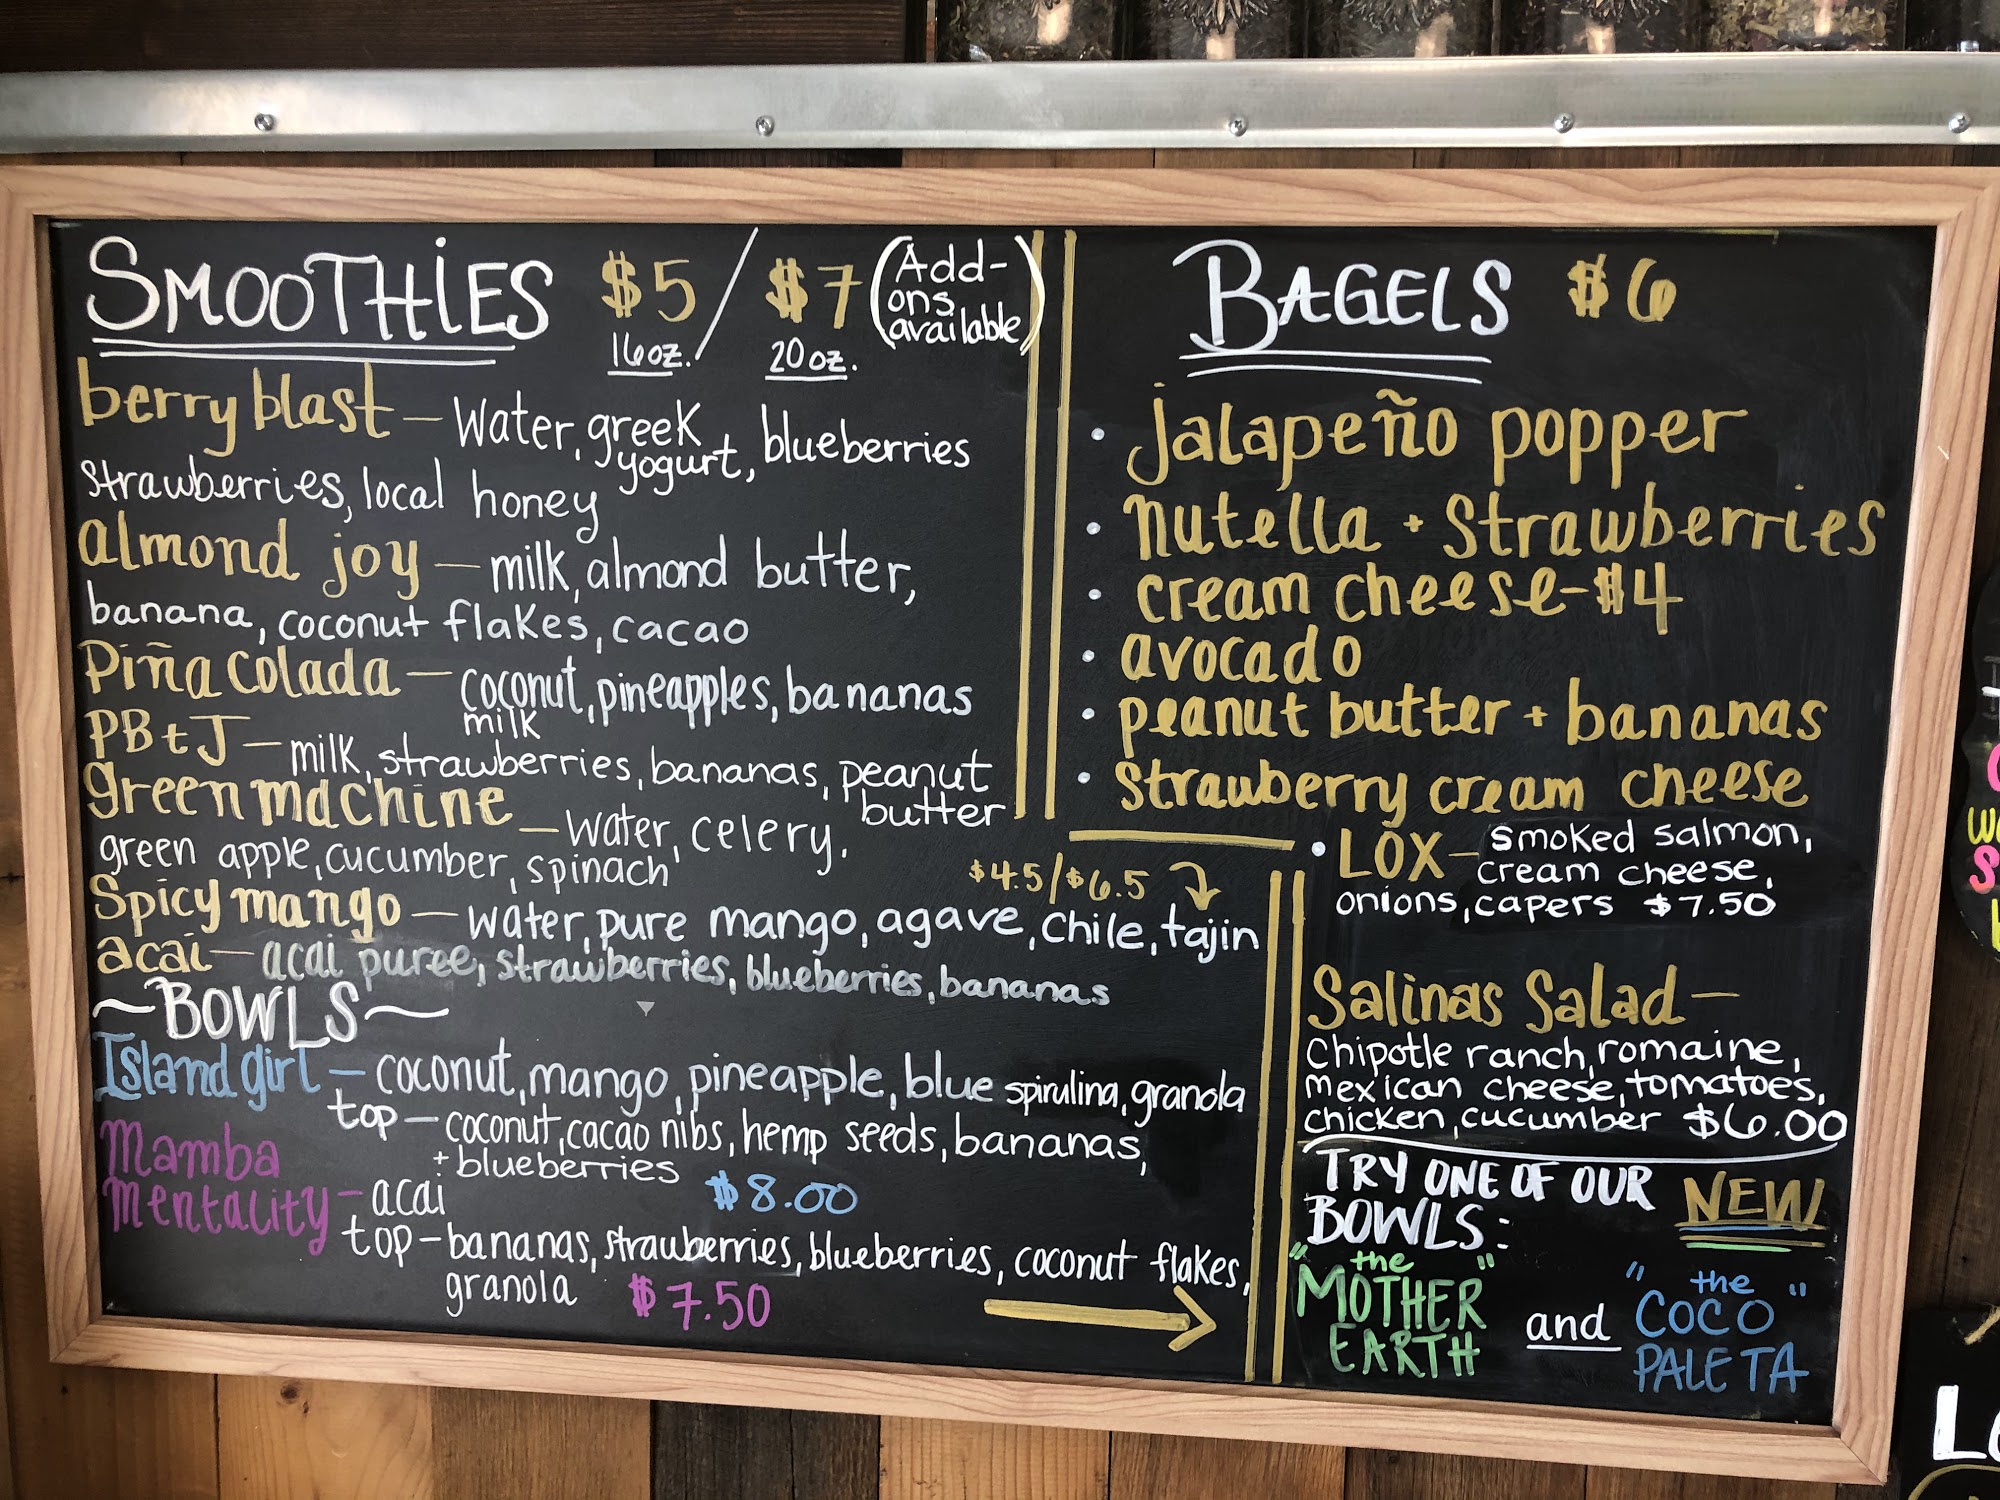 SMOOTHIES $5 / $7 (Add-
ons
available)
16oz. 20oz.
berry blast — Water, greek
yogurt, blueberries
strawberries, local honey
almond joy — milk, almond butter,
banana, coconut flakes, cacao
Piña Colada — coconut, pineapples, bananas
milk
PB + J — milk, strawberries, bananas, peanut
butter
green machine — water, celery,
green apple, cucumber, spinach
$4.5/$6.5
Spicy mango — water, pure mango, agave, chile, tajin
acai — acai puree, strawberries, blueberries, bananas
~BOWLS~
Island girl — coconut, mango, pineapple, blue spirulina, granola
top — coconut, cacao nibs, hemp seeds, bananas,
+ blueberries
$8.00
Mamba
Mentality — acai
top — bananas, strawberries, blueberries, coconut flakes,
granola $7.50
BAGELS $6
• jalapeño popper
• nutella + strawberries
• cream cheese - $4
• avocado
• peanut butter + bananas
• strawberry cream cheese
• LOX — smoked salmon,
cream cheese,
onions, capers $7.50
Salinas Salad —
Chipotle ranch, romaine,
mexican cheese, tomatoes,
chicken, cucumber $6.00
TRY ONE OF OUR NEW
BOWLS:
"the
MOTHER"
EARTH
and
"the
COCO"
PALETA